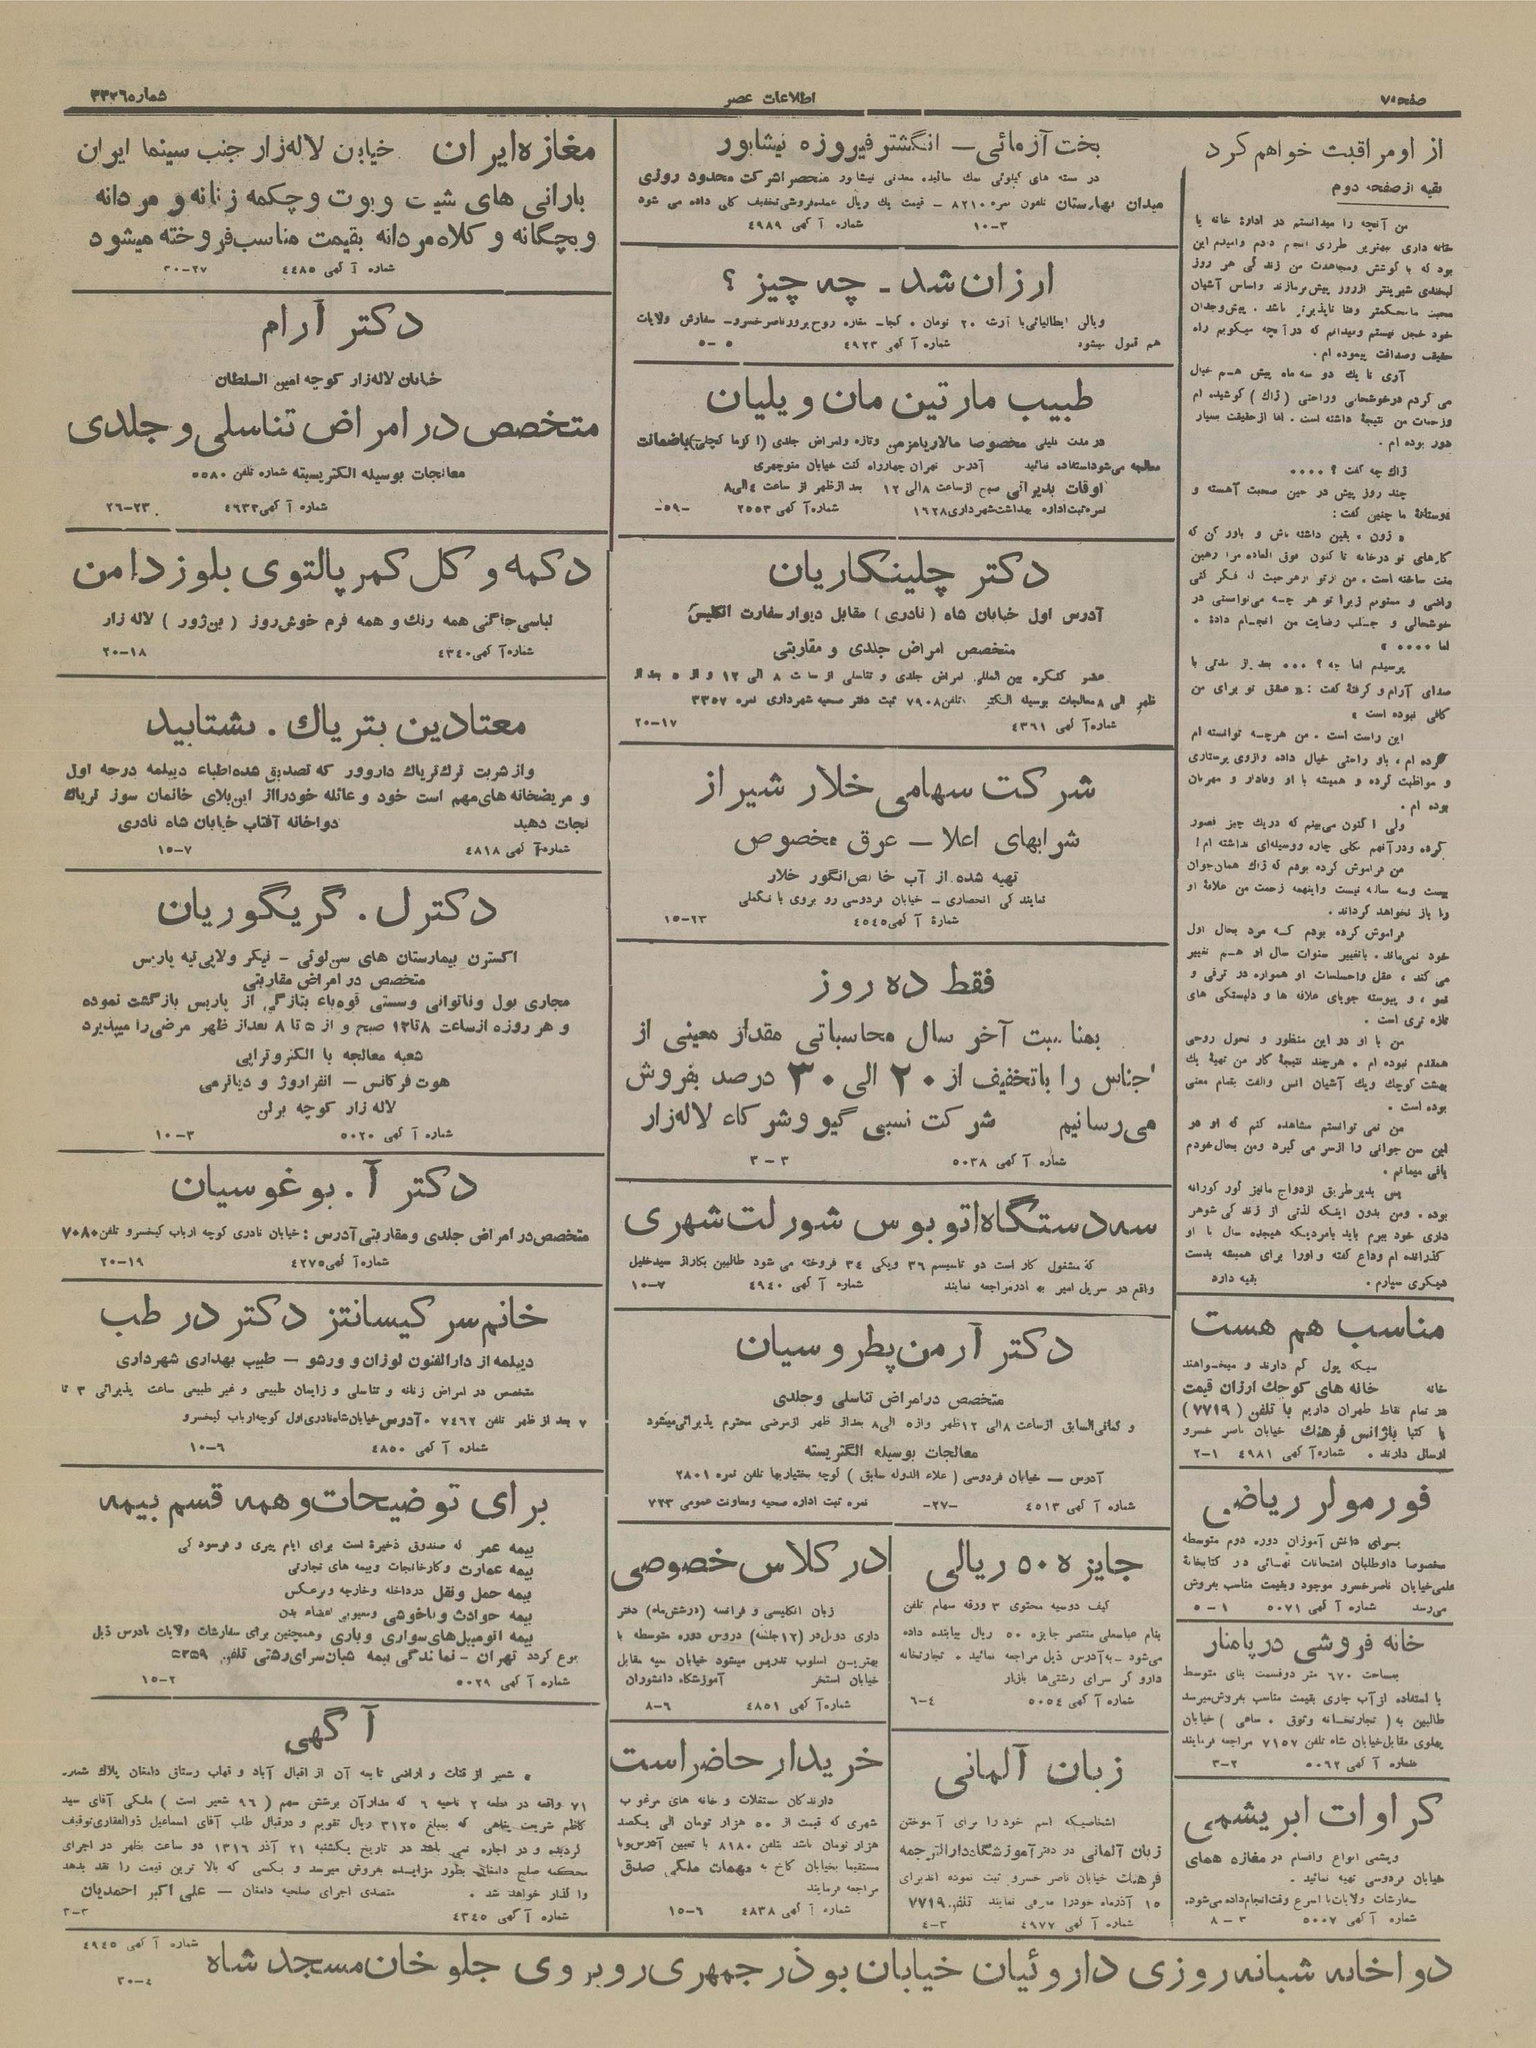 صفحه ۷
اطلاعات عصر
شماره ۳۳۲۶
از او مراقبت خواهم کرد
بقیه از صفحه دوم
من آنچه را میدانستم در ادارهٔ خانه یا
خانه داری بهترین طرزی انجام دادم ومیدیدم این
بود که با کوشش ومجاهدت من زندگی هر روز
لبخندی شیرینتر ازروز پیش برمازند واساس آشیان
محبت ما محکمتر وفنا ناپذیرتر باشد . پیش وجدان
خود خجل نیستم ومیدانم که درآنچه میگویم راه
حقیقت وصداقت پیموده ام .
آری تا یك دو سه ماه پیش هم خیال
می کردم درخوشحالی وراحتی (ژاك) کوشیده ام
وزحمات من نتیجهٔ داشته است . اما ازحقیقت بسیار
دور بوده ام .
ژاك چه گفت ؟ ....
چند روز پیش در حین صحبت آهسته و
دوستانهٔ ما چنین گفت :
« ژون ، یقین داشته باش و باور کن که
کارهای تو درخانه تا کنون فوق العاده مرا رهین
منت ساخته است . من از تو ازهرحیث
راضی و ممنونم زیرا تو هر چه می توانستی در
خوشحالی و جلب رضایت من انجام دادهٔ .
اما .... »
پرسیدم اما چه ؟ ... بعد از مدتی با
صدای آرام و گرفتهٔ گفت : « عشق تو برای من
کافی نبوده است »
این راست است . من هرچه توانسته ام
کرده ام ، باو راحتی خیال داده وازوی پرستاری
و مواظبت کرده و همیشه با او وفادار و مهربان
بوده ام .
ولی اکنون می بینم که دریك چیز قصور
کرده ودرآنهم بکلی چاره ووسیله‌ای نداشته ام !
من فراموش کرده بودم که ژاك همان جوان
بیست وسه ساله نیست واینهمه زحمت من علاقهٔ او
را باز نخواهد گرداند .
فراموش کرده بودم که مرد بحال اول
خود نمی‌ماند . باتغییر سنوات سال او هم تغییر
می کند ، عقل واحساسات او همواره در ترقی و
نمو ، و پیوسته جویای علاقه ها و دلبستگی های
تازه تری است .
من با او در این منظور و تحول روحی
همقدم نبوده ام . هرچند نتیجهٔ کار من تهیهٔ یك
بهشت کوچك ویك آشیان انس والفت بتمام معنی
بوده است .
من نمی توانستم مشاهده کنم که او در
این سن جوانی را ازسر می گیرد ومن بحال خودم
باقی میمانم .
پس بدین طریق ازدواج ما نیز کور کورانه
بوده . ومن بدون اینکه لذتی از زندگی شوهر
داری خود ببرم باید بامردیکه هیجده سال با او
گذرانده ام وداع گفته و اورا برای همیشه بدست
دیگری سپارم . بقیه دارد
مناسب هم هست
سیکه پول کم دارند و میخواهند
خانه خانه های کوچك ارزان قیمت
در تمام نقاط طهران داریم با تلفن (۷۷۱۹)
یا کتبا باژانس فرهنك خیابان ناصر خسرو
ارسال دارند . شماره آگهی ۴۹۸۱ ۱-۲
فورمولر ریاضی
برای دانش آموزان دوره دوم متوسطه
مخصوصا داوطلبان امتحانات نهائی در کتابخانهٔ
علمی خیابان ناصرخسرو موجود وبقیمت مناسب بفروش
می‌رسد شماره آگهی ۵۰۷۱ ۱-۵
خانه فروشی در پامنار
بمساحت ۶۷۰ متر دوقسمت بنای متوسط
با استفاده از آب جاری بقیمت مناسب بفروش میرسد
طالبین به (تجارتخانه وثوق . ساعی) خیابان
پهلوی مقابل خیابان شاه تلفن ۷۱۵۷ مراجعه فرمایند
شماره آگهی ۵۰۶۲ ۲-۳
کراوات ابریشمی
وپشمی انواع واقسام در مغازه همای
خیابان فردوسی تهیه نمائید .
سفارشات ولایات با اسرع وقت انجام داده می‌شود.
شماره آگهی ۵۰۰۷ ۳-۸
بخت آزمائی – انگشتر فیروزه نیشابور
در بسته های کیلوئی سنك سائیده معدنی نیشابور منحصرا شرکت محدود روزی
میدان بهارستان تلفون نمره ۸۲۱۰ – قیمت یك ریال عمده‌فروشی تخفیف کلی داده می شود
شماره آگهی ۴۹۸۹ ۳-۱۰
ارزان شد - چه چیز ؟
ویالن ایطالیائی با آرشه ۲۰ تومان . کجا - مغازه روح پرور ناصرخسرو - سفارش ولایات
هم قبول میشود شماره آگهی ۴۹۲۳ ۵-۵
طبیب مارتین مان ویلیان
در مدت قلیلی مخصوصا مالاریا مزمن وتازه وامراض جلدی (اکزما کچلی) باضمانت
معالجه می‌شود استفاده نمائید آدرس تهران چهارراه کنت خیابان منوچهری
اوقات پذیرائی صبح از ساعت ۸ الی ۱۲ بعد از ظهر از ساعت ۴ الی ۸
نمره ثبت اداره بهداشت شهرداری ۱۶۲۸ شماره آگهی ۲۵۵۳ -۵۹-
دکتر چلینگاریان
آدرس اول خیابان شاه (نادری) مقابل دیوار سفارت انگلیس
متخصص امراض جلدی و مقاربتی
عضو کنگره بین المللی امراض جلدی و تناسلی از ساعت ۸ الی ۱۲ و از ۵ بعد از
ظهر الی ۸ معالجات بوسیله الکتر تلفن ۷۹۰۸ ثبت دفتر صحیه شهرداری نمره ۳۳۵۷
شماره آگهی ۴۳۶۱ ۱۷-۲۰
شرکت سهامی خلار شیراز
شرابهای اعلا – عرق مخصوص
تهیه شده از آب خالص انگور خلار
نمایندگی انحصاری – خیابان فردوسی رو بروی بانك ملی
شمارهٔ آگهی ۴۵۴۵ ۱۳-۱۵
فقط ده روز
بمناسبت آخر سال محاسباتی مقدار معینی از
اجناس را باتخفیف از ۲۰ الی ۳۰ درصد بفروش
می‌رسانیم شرکت نسبی گیو و شرکاء لاله‌زار
شماره آگهی ۵۰۳۸ ۳-۳
سه دستگاه اتوبوس شورلت شهری
که مشغول کار است دو تاسیسم ۳۶ ویکی ۳۴ فروخته می شود طالبین بکاراز سیدخلیل
واقع در سرپل امیر بهادر مراجعه نمایند شماره آگهی ۴۹۴۰ ۷-۱۰
دکتر آرمن پطروسیان
متخصص درامراض تناسلی وجلدی
و کمافی‌السابق ازساعت ۸ الی ۱۲ ظهر واز ۵ الی ۸ بعداز ظهر ازمرضی محترم پذیرائی میشود
معالجات بوسیله الکتریسته
آدرس – خیابان فردوسی (علاء الدوله سابق) کوچه بختیاریها تلفن نمره ۲۸۰۱
شماره آگهی ۴۵۱۳ -۲۷- نمره ثبت اداره صحیه ومعاونت عمومی ۷۲۳
جایزه ۵۰ ریالی
کیف دوسیه محتوی ۳ ورقه سهام تلفن
بنام عباسعلی منتصر جایزه ۵۰ ریال بیابنده داده
می‌شود - به آدرس ذیل مراجعه نمائید . تجارتخانه
داروگر سرای رشتی‌ها بازار
شماره آگهی ۵۰۵۴ ۴-۶
زبان آلمانی
اشخاصیکه اسم خود را برای آموختن
زبان آلمانی در دفتر آموزشگاه دارالترجمه
فرهنك خیابان ناصر خسرو ثبت نموده اند برای
۱۵ آذرماه خودرا معرفی نمایند تلفن ۷۷۱۹
شماره آگهی ۴۹۷۷ ۳-۴
در کلاس خصوصی
زبان انگلیسی و فرانسه (درشش‌ماه) دفتر
داری دوبل در (۱۲ جلسه) دروس دوره متوسطه با
بهترین اسلوب تدریس میشود خیابان سپه مقابل
خیابان استخر آموزشگاه دانشوران
شماره آگهی ۴۸۵۱ ۶-۸
خریدار حاضر است
دارندگان مستغلات و خانه های مرغوب
شهری که قیمت از ۵۰ هزار تومان الی یکصد
هزار تومان باشد بتلفن ۸۱۸۰ با تعیین آدرس ویا
مستقیما بخیابان کاخ به مهمات ملکی صدق
مراجعه فرمایند
شماره آگهی ۴۸۳۸ ۶-۱۵
مغازه ایران خیابان لاله‌زار جنب سینما ایران
بارانی های شیك و بوت و چکمه زنانه و مردانه
و بچگانه و کلاه مردانه بقیمت مناسب فروخته میشود
شماره آگهی ۴۴۸۵ ۲۷-۳۰
دکتر آرام
خیابان لاله‌زار کوچه امین السلطان
متخصص در امراض تناسلی و جلدی
معالجات بوسیله الکتریسیته شماره تلفن ۵۵۸۰
شماره آگهی ۴۶۳۲ ۲۳-۲۶
دکمه و گل کمر پالتوی بلوز دامن
لباسی جاگتی همه رنك و همه فرم خوش‌روز (بن‌ژور) لاله زار
شماره آگهی ۴۳۴۰ ۱۸-۲۰
معتادین بتریاك . بشتابید
واز شربت ترك تریاك داروور که تصدیق شده اطباء دیپلمه درجه اول
و مریضخانه های مهم است خود و عائله خودرا از این بلای خانمان سوز تریاك
نجات دهید دواخانه آفتاب خیابان شاه نادری
شماره آگهی ۴۸۱۸ ۷-۱۵
دکتر ل . گریگوریان
اکسترن بیمارستان های سن‌لوئی - نیکر ولاپی‌تیه پاریس
متخصص در امراض مقاربتی
مجاری بول وناتوانی وسستی قوه‌باء بتازگی از پاریس بازگشت نموده
و هر روزه ازساعت ۸ تا ۱۲ صبح و از ۵ تا ۸ بعداز ظهر مرضی را میپذیرد
شعبه معالجه با الکتروتراپی
هوت فرکانس – انفراروژ و دیاترمی
لاله زار کوچه برلن
شماره آگهی ۵۰۲۰ ۳-۱۰
دکتر آ . بوغوسیان
متخصص در امراض جلدی و مقاربتی آدرس : خیابان نادری کوچه ارباب کیخسرو تلفن ۷۰۸۰
شماره آگهی ۴۲۷۵ ۱۹-۲۰
خانم سرکیسانتز دکتر در طب
دیپلمه از دارالفنون لوزان و ورشو – طبیب بهداری شهرداری
متخصص در امراض زنانه و تناسلی و زایمان طبیعی و غیر طبیعی ساعت پذیرائی ۳ تا
۷ بعد از ظهر تلفن ۷۴۶۲ . آدرس خیابان شاه نادری اول کوچه ارباب کیخسرو
شماره آگهی ۴۸۵۰ ۶-۱۰
برای توضیحات و همه قسم بیمه
بیمه عمر که صندوق ذخیرهٔ است برای ایام پیری و فرسودگی
بیمه عمارت وکارخانجات وبیمه های تجارتی
بیمه حمل ونقل درداخله وخارجه وبرعکس
بیمه حوادث وناخوشی ومعیوبی اعضاء بدن
بیمه اتومبیل‌های سواری و باری وهمچنین برای سفارشات ولایات بآدرس ذیل
رجوع گردد تهران - نمایندگی بیمه شبان سرای رشتی تلفن ۵۳۵۹
شماره آگهی ۵۰۲۹ ۲-۱۵
آگهی
شعیر از قنات و اراضی تابعه آن از اقبال آباد و قهاب رستاق دامغان پلاك شعیر
۷۱ واقعه در قطعه ۲ ناحیه ۶ که مدار آن برشش سهم (۹۶ شعیر است) ملکی آقای سید
کاظم شریعت پناهی که بمبلغ ۳۱۲۵ ریال تقویم و درقبال طلب آقای اسماعیل ذوالفقاری توقیف
گردیده و در اجاره نمی باشد در تاریخ یکشنبه ۲۱ آذر ۱۳۱۶ دو ساعت بظهر در اجرای
محکمه صلح دامغان بطور مزایده بفروش میرسد و بکسی که بالا ترین قیمت را نقد بدهد
واگذار خواهد شد . متصدی اجرای صلحیه دامغان – علی اکبر احمدیان
شماره آگهی ۴۳۴۵ ۳-۳
دواخانه شبانه روزی داروئیان خیابان بوذرجمهری روبروی جلوخان مسجد شاه
شماره آگهی ۴۹۴۵
۴-۳۰